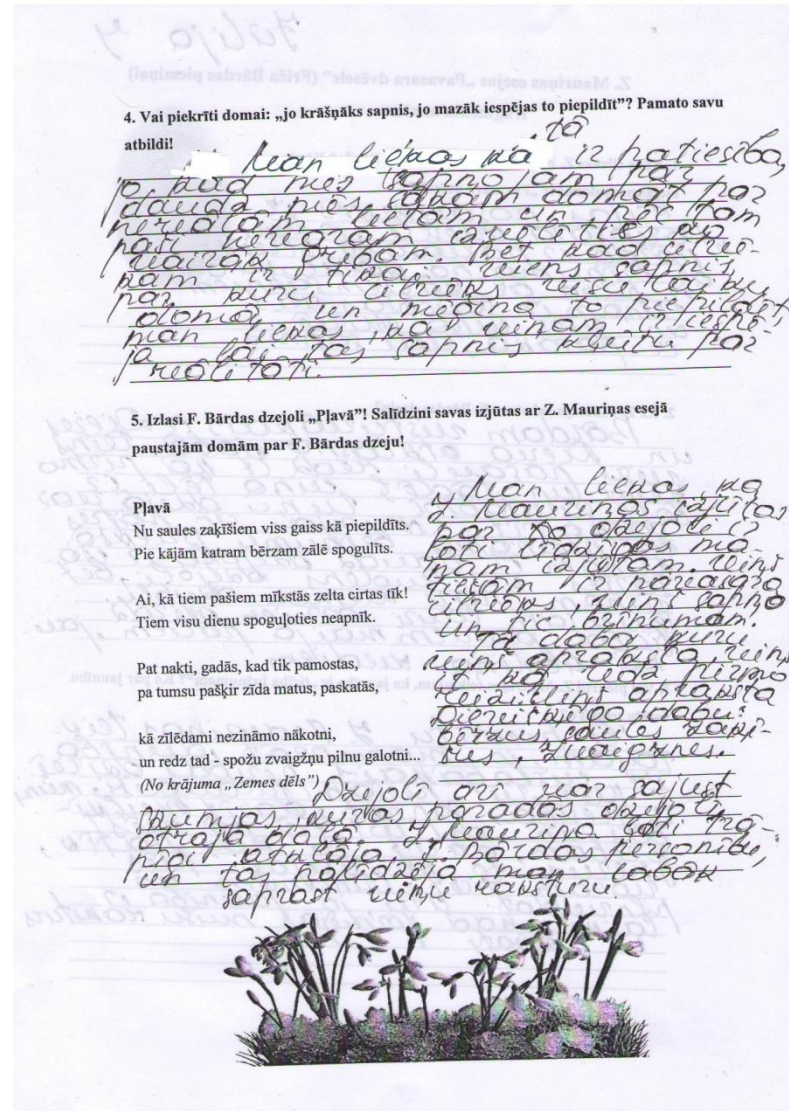 4. Vai piekrīti domai: „jo krāšņāks sapnis, jo mazāk iespējas to piepildīt”? Pamato savu
atbildi!
Man liekas ka tā ir patiesība,
jo kad mēs sapņojam par
daudz mēs sākam domāt par
nereālām lietām un pēc tam
paši nevaram izvēlēties ko
vairāk gribam. Bet kad cilvē-
kam ir tikai viens sapnis,
par kuru cilvēks visu laiku
domā un mēģina to piepildīt,
man liekas, ka viņam ir iespē-
ja lai tas sapnis kļūtu par
realitāti.
5. Izlasi F. Bārdas dzejoli „Pļavā”! Salīdzini savas izjūtas ar Z. Mauriņas esejā
paustajām domām par F. Bārdas dzeju!
Pļavā
Nu saules zaķīšiem viss gaiss kā piepildīts.
Pie kājām katram bērzam zālē spogulīts.
Ai, kā tiem pašiem mīkstās zelta cirtas tīk!
Tiem visu dienu spoguļoties neapnīk.
Pat nakti, gadās, kad tik pamostas,
pa tumsu pašķir zīda matus, paskatās,
kā zīlēdami nezināmo nākotni,
un redz tad - spožu zvaigžņu pilnu galotni...
(No krājuma „Zemes dēls”)
Man liekas, ka
Z. Mauriņas izjūtas
par to dzejoli ir
ļoti līdzīgas ma-
nam izjūtam. Viņš
tiešām ir pavasara
cilvēks, viņš sapņo
un tic brīnumam.
Tā daba kuru
viņš apraksta viņš
it kā redz pirmo
reizi. Viņš apraksta
dabu:
bērzus, saules zaķī-
šus, zvaigznes.
Dzejolī arī var sajust
skumjas, kuras parādās dzejoļa
otrajā daļā. Z. Mauriņa ļoti trā-
pīgi atklāja F. Bārdas personību,
un tas palīdzēja man labāk
saprast viņu raksturu.